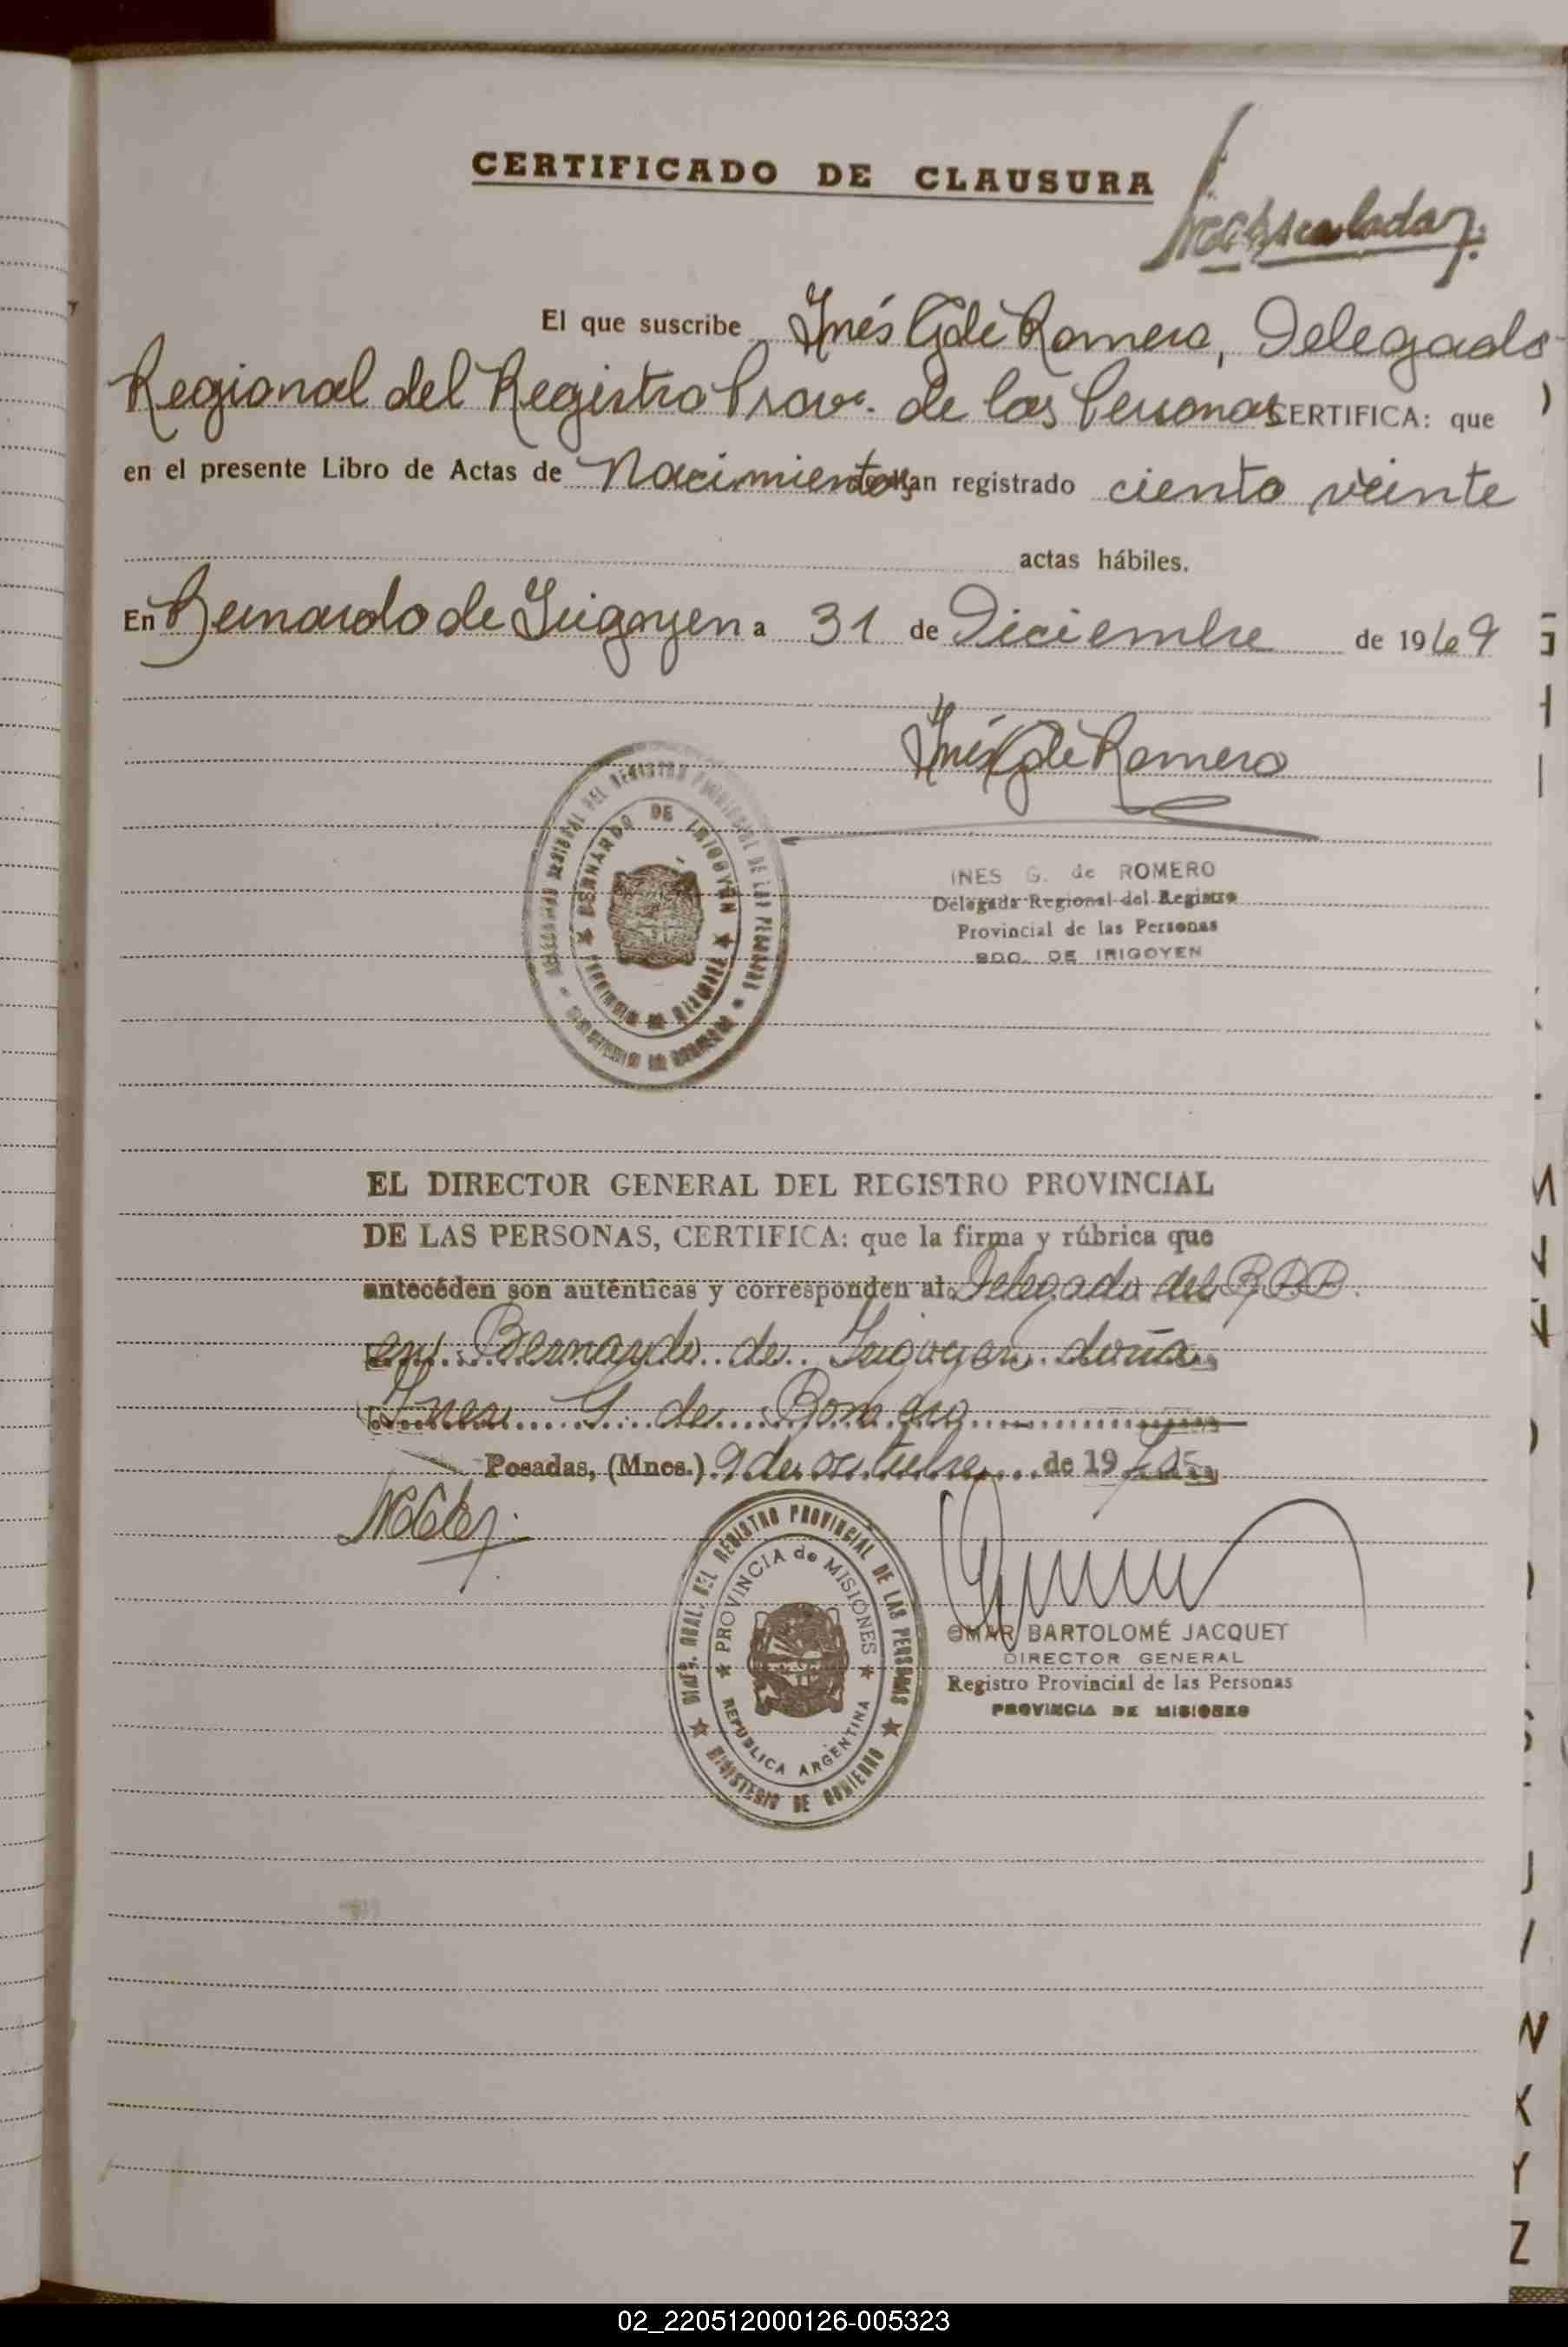 CERTIFICADO DE CLAUSURA
El que suscribe Inés G de Romero, Delegado
Regional del Registro Prov. de las Personas CERTIFICA: que
en el presente Libro de Actas de Nacimientos se han registrado ciento veinte
actas hábiles.
En Bernardo de Irigoyen a 31 de Diciembre de 1969
Inés G de Romero
DEL REGISTRO PROVINCIAL DE LAS PERSONAS
BERNARDO DE IRIGOYEN
INES G. de ROMERO
Delegada Regional del Registro
Provincial de las Personas
BDO. DE IRIGOYEN
EL DIRECTOR GENERAL DEL REGISTRO PROVINCIAL
DE LAS PERSONAS, CERTIFICA: que la firma y rúbrica que
anteceden son auténticas y corresponden al Delegado del R.P.P.
en Bernardo de Irigoyen doña
Ines G. de Romero
Posadas, (Mnes.) 9 de octubre de 19
DIRECC. GRAL. DEL REGISTRO PROVINCIAL DE LAS PERSONAS
PROVINCIA de MISIONES
REPUBLICA ARGENTINA
MINISTERIO DE GOBIERNO
OMAR BARTOLOMÉ JACQUET
DIRECTOR GENERAL
Registro Provincial de las Personas
PROVINCIA DE MISIONES
M
N
X
Y
Z
02_220512000126-005323